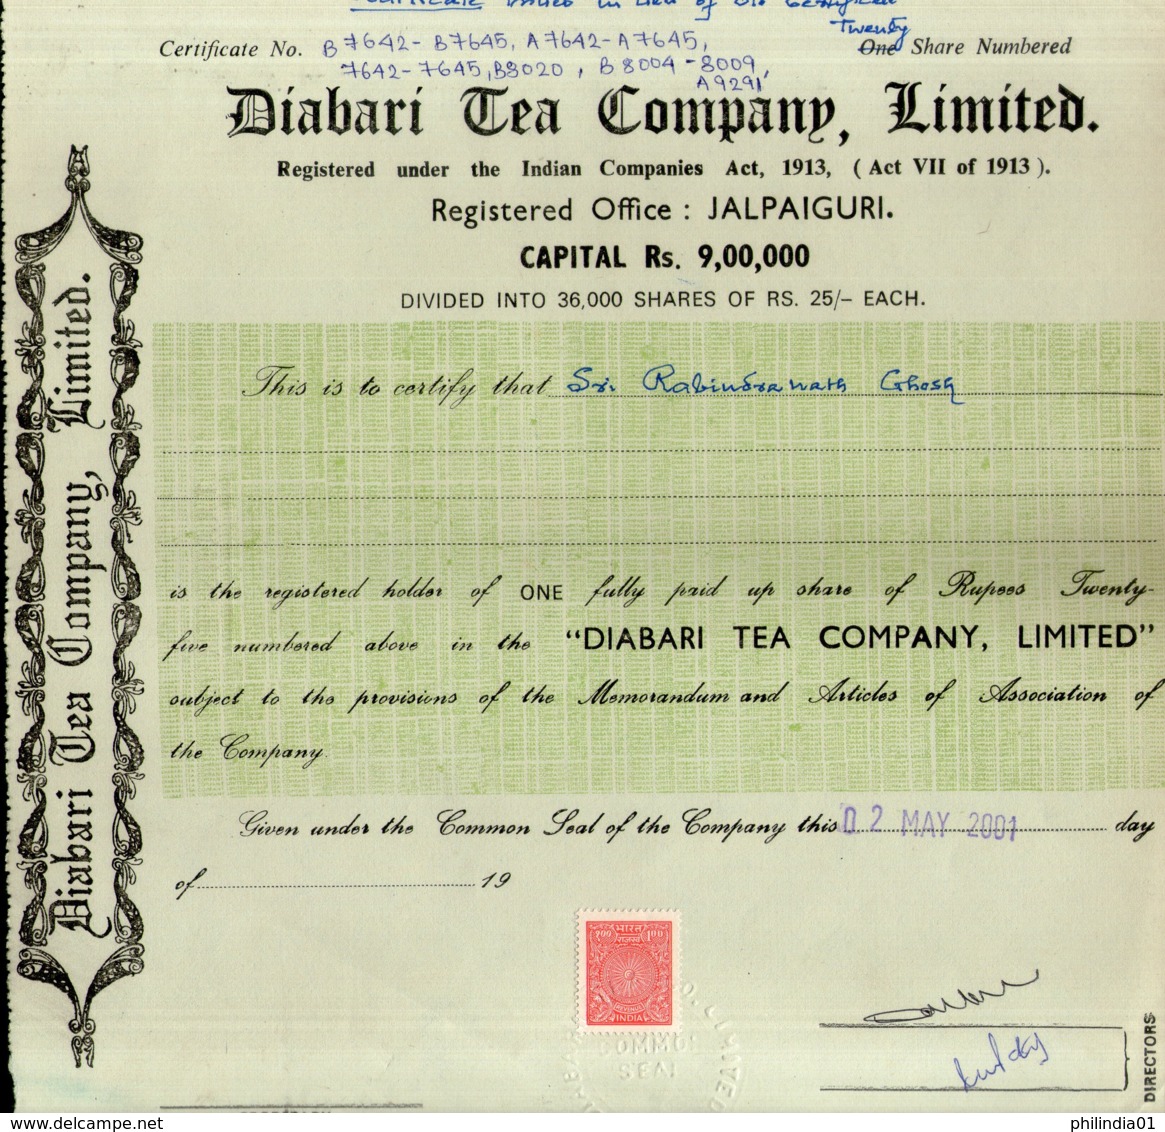 Certificate issued in lieu of old certificate
Twenty
Certificate No. B7642-B7645, A7642-A7645, One Share Numbered
7642-7645, B8020, B8004-8009,
A9291,
Diabari Tea Company, Limited.
Registered under the Indian Companies Act, 1913, (Act VII of 1913).
Registered Office : JALPAIGURI.
CAPITAL Rs. 9,00,000
DIVIDED INTO 36,000 SHARES OF RS. 25/– EACH.
This is to certify that Sri Rabindranath Ghosh
is the registered holder of ONE fully paid up share of Rupees Twenty-
five numbered above in the "DIABARI TEA COMPANY, LIMITED"
subject to the provisions of the Memorandum and Articles of Association of
the Company.
Given under the Common Seal of the Company this 02 MAY 2001 day
of 19
Diabari Tea Company, Limited.
भारत
१00 राजस्व 100
REVENUE
INDIA
COMMO
SEAL
DIRECTORS
delcampe.net
philindia01